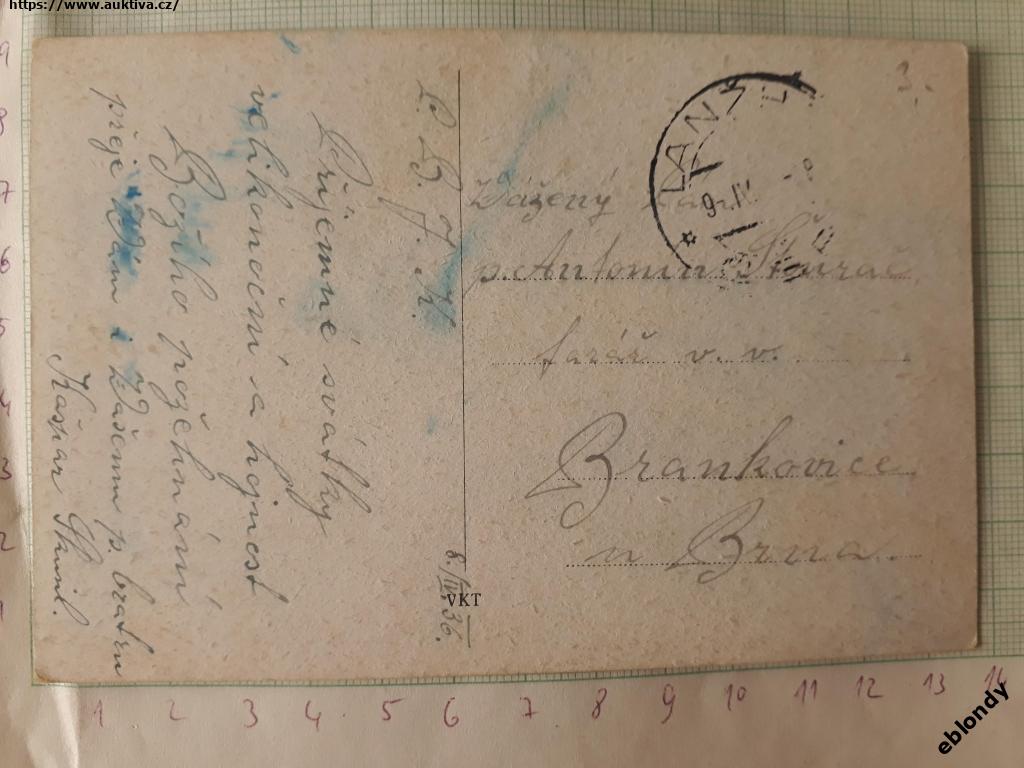 https://www.auktiva.cz/
P. B. J. K.
Příjemné svátky
velikonoční a hojnost
Božího požehnání
přeje Vám i Vašemu p. bratru
Kašpar
8./IV. 36.
VKT
3.-
BLANK
9. IV.
Vážený pán
p. Antonín
farář v. v.
Brankovice
u Brna.
9
8
7
6
5
4
3
2
1
1 2 3 4 5 6 7 8 9 10 11 12 13 14
eblondy